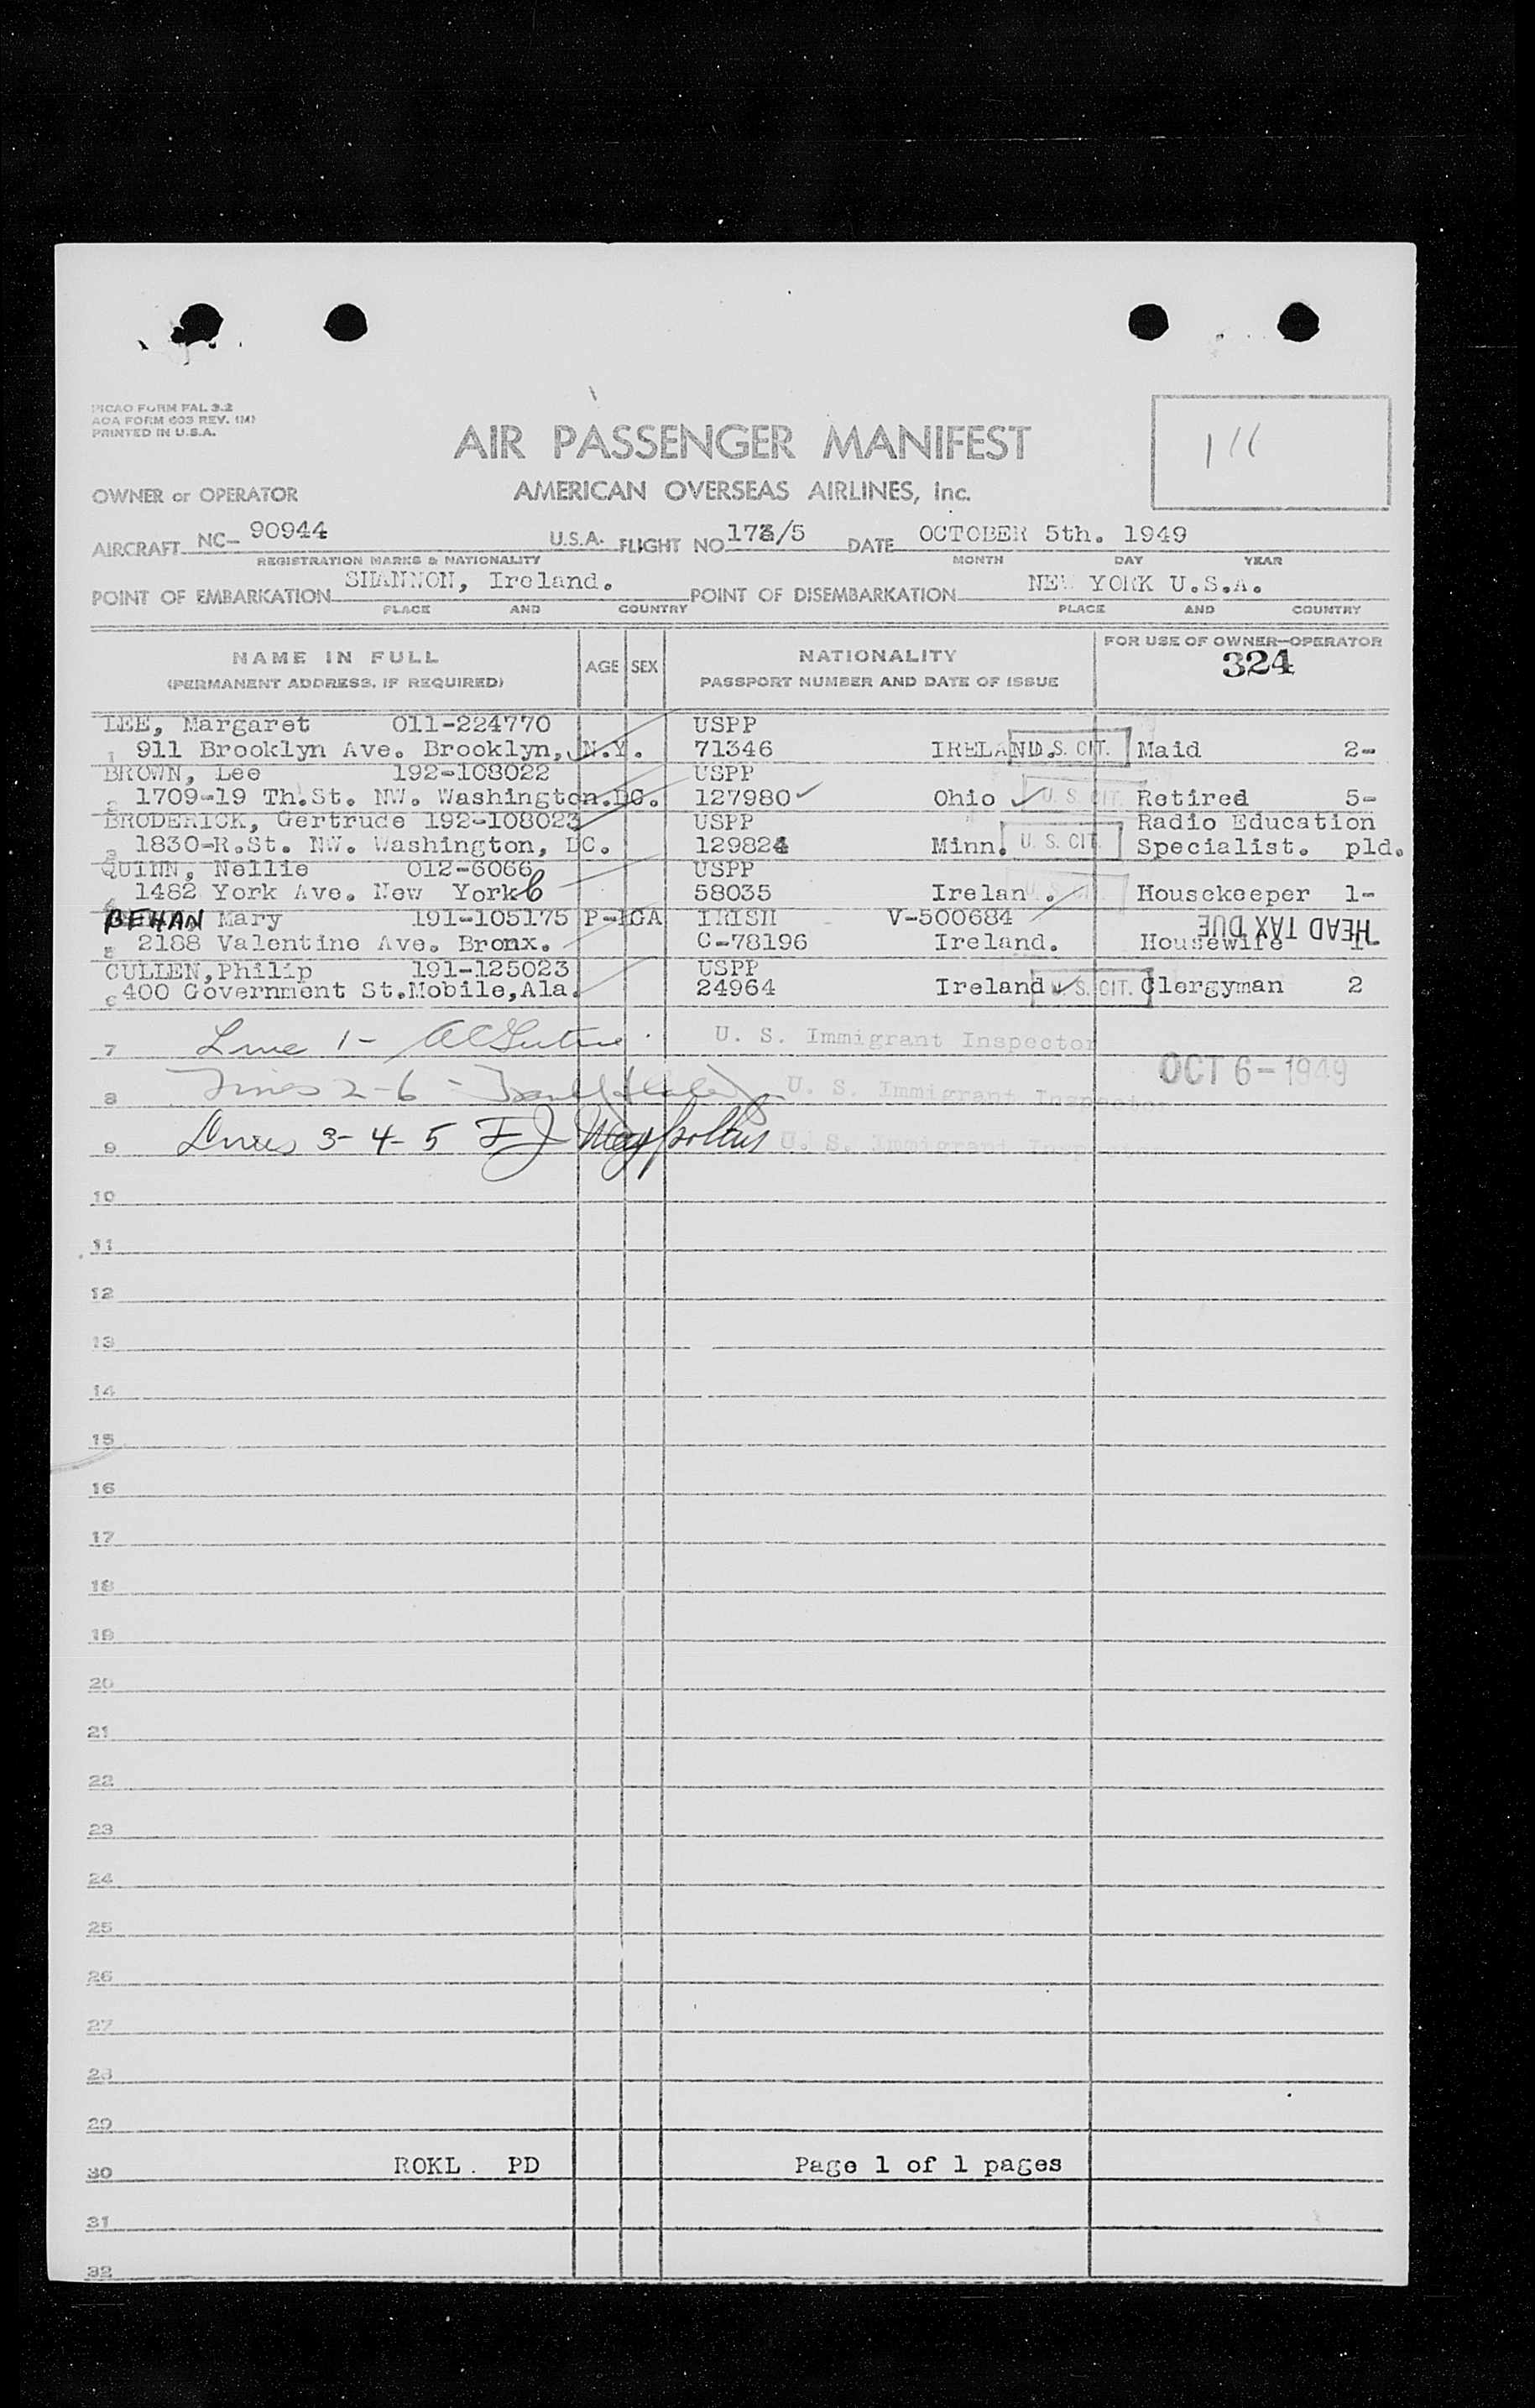 PICAO FORM FAL 3.2
AOA FORM 603 REV. (M)
PRINTED IN U.S.A.
AIR PASSENGER MANIFEST
OWNER or OPERATOR AMERICAN OVERSEAS AIRLINES, Inc.
AIRCRAFT NC- 90944 U.S.A. FLIGHT NO. DATE OCTOBER 5th. 1949
REGISTRATION MARKS & NATIONALITY MONTH DAY YEAR
POINT OF EMBARKATION SHANNON, Ireland. POINT OF DISEMBARKATION NEW YORK U.S.A.
PLACE AND COUNTRY PLACE AND COUNTRY
NAME IN FULL AGE SEX NATIONALITY FOR USE OF OWNER-OPERATOR
(PERMANENT ADDRESS, IF REQUIRED) PASSPORT NUMBER AND DATE OF ISSUE 324
LEE, Margaret 011-224770 USPP
1 911 Brooklyn Ave. Brooklyn, N.Y. 71346 IRELAND. U.S. CIT. Maid 2-
BROWN, Lee 192-108022 USPP
2 1709-19 Th.St. NW. Washington.DC. 127980 Ohio U.S. CIT. Retired 5-
BRODERICK, Gertrude 192-108023 USPP Radio Education
3 1830-R.St. NW. Washington, DC. 129824 Minn. U.S. CIT Specialist. pld.
QUINN, Nellie 012-6066 USPP
4 1482 York Ave. New York 6 58035 Irelan . U.S. CIT Housekeeper 1-
BEHAN Mary 191-105175 P-ICA IRISH V-500684 HEAD TAX DUE
5 2188 Valentine Ave. Bronx. C-78196 Ireland. Housewife 1-
CULLEN,Philip 191-125023 USPP
6 400 Government St.Mobile,Ala. 24964 Ireland U.S. CIT. Clergyman 2
7 Line 1- U. S. Immigrant Inspector
OCT 6-1949
8 Lines 2-6 - U. S. Immigrant Inspector
9 Lines 3-4-5 F J U. S. Immigrant Inspector
10
11
12
13
14
15
16
17
18
19
20
21
22
23
24
25
26
27
28
29
30 ROKL. PD Page 1 of 1 pages
31
32